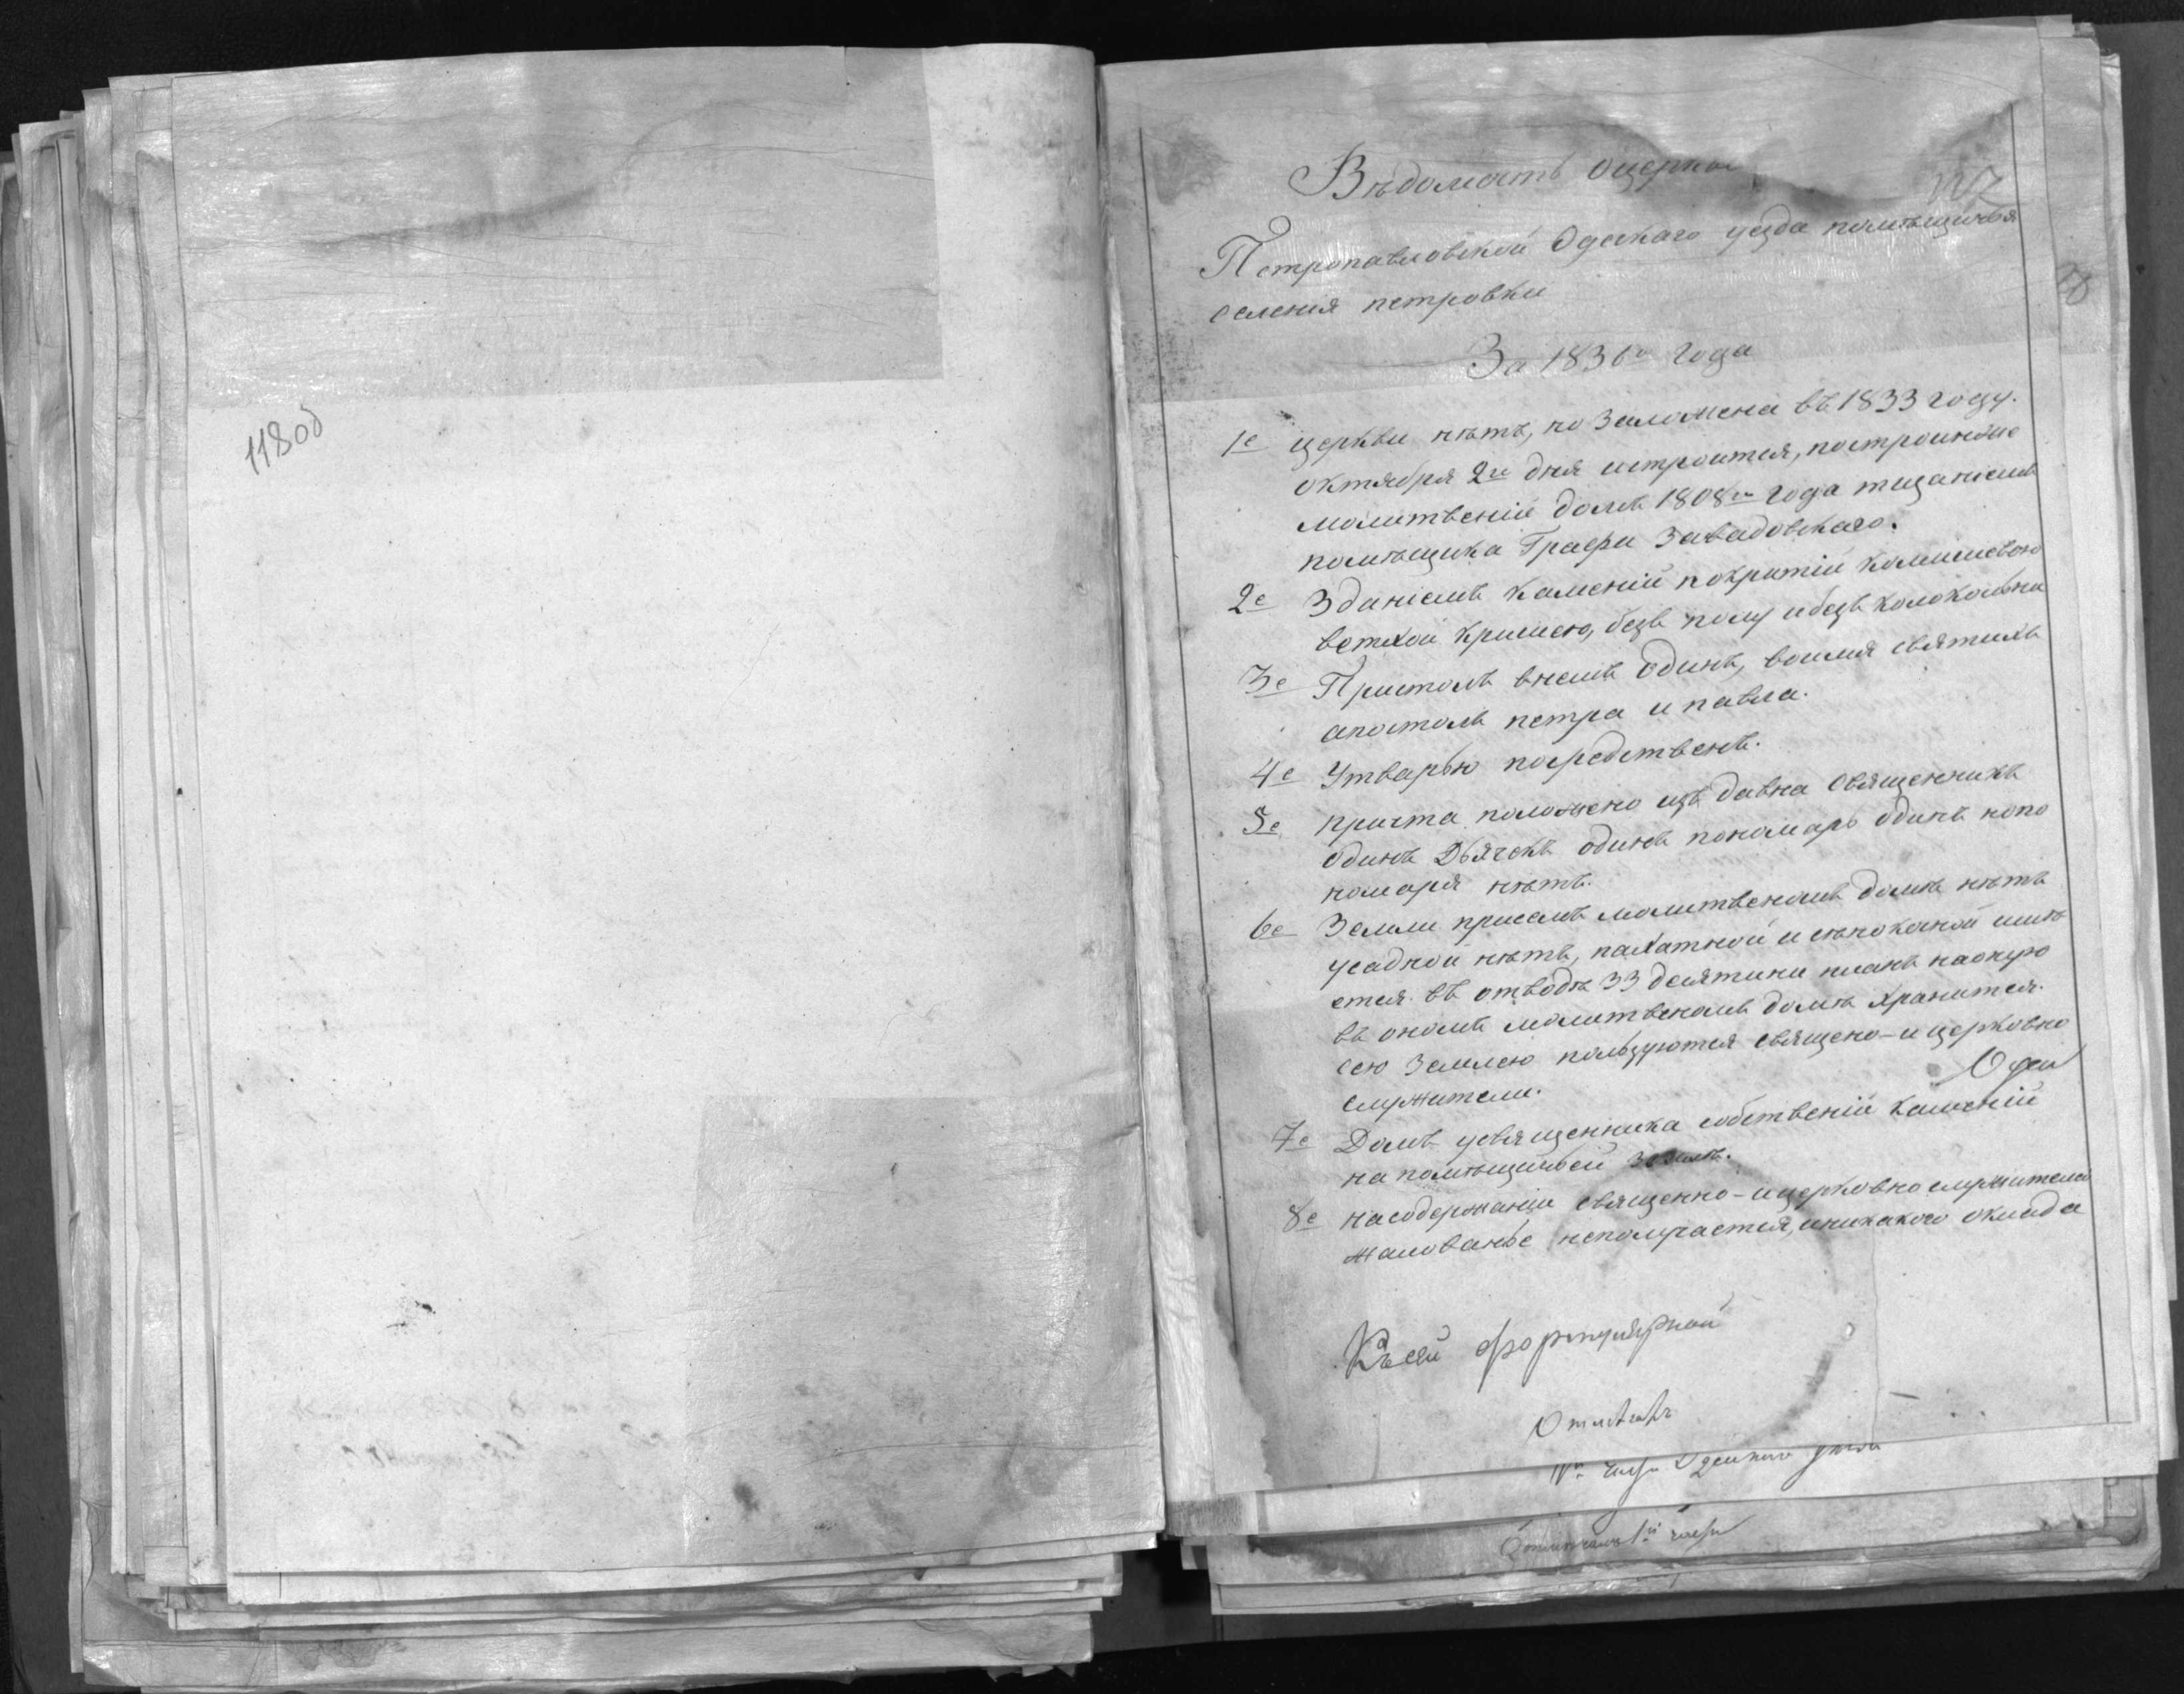 118об
Вѣдомость оцеркви
Петропавловской Одескаго уезда помѣщичья
селенія петровки
За 1836го Года
1е церкви нѣтъ, но Заложена въ 1833 году.
октября 2го дня истроится, построиное
молитвеній домъ 1808го Года тщаніемъ
помѣщика Графа Завадовскаго.
2е Зданіемъ Каменій покритій Камишевою
ветхой кришею, безъ полу ибезъ колокольни
3е Пристолъ внемъ Одинъ, воимя святихъ
апостолъ петра и павла.
4е Утварью посредственъ.
5е причта положено изъ давна Священникъ
одинъ Дьячекъ одинъ пономарь одинъ нопо
номаря нѣтъ.
6е Земли присемъ молитвеномъ домѣ нѣтъ
усадной нѣтъ, пахатной и сѣнокосной имѣ
ется въ отводѣ 33 десятини планъ наоную
въ ономъ молитвеномъ домѣ хранится.
сею Землею пользуются священо-и церковно
служители.
7е Домъ усвященника собственій каменій
на помѣщичьей Землѣ.
8е насодержаніе священно-ицерковно служителей
жалованье неполучается, иникакого оклада
Къ сей формулярной